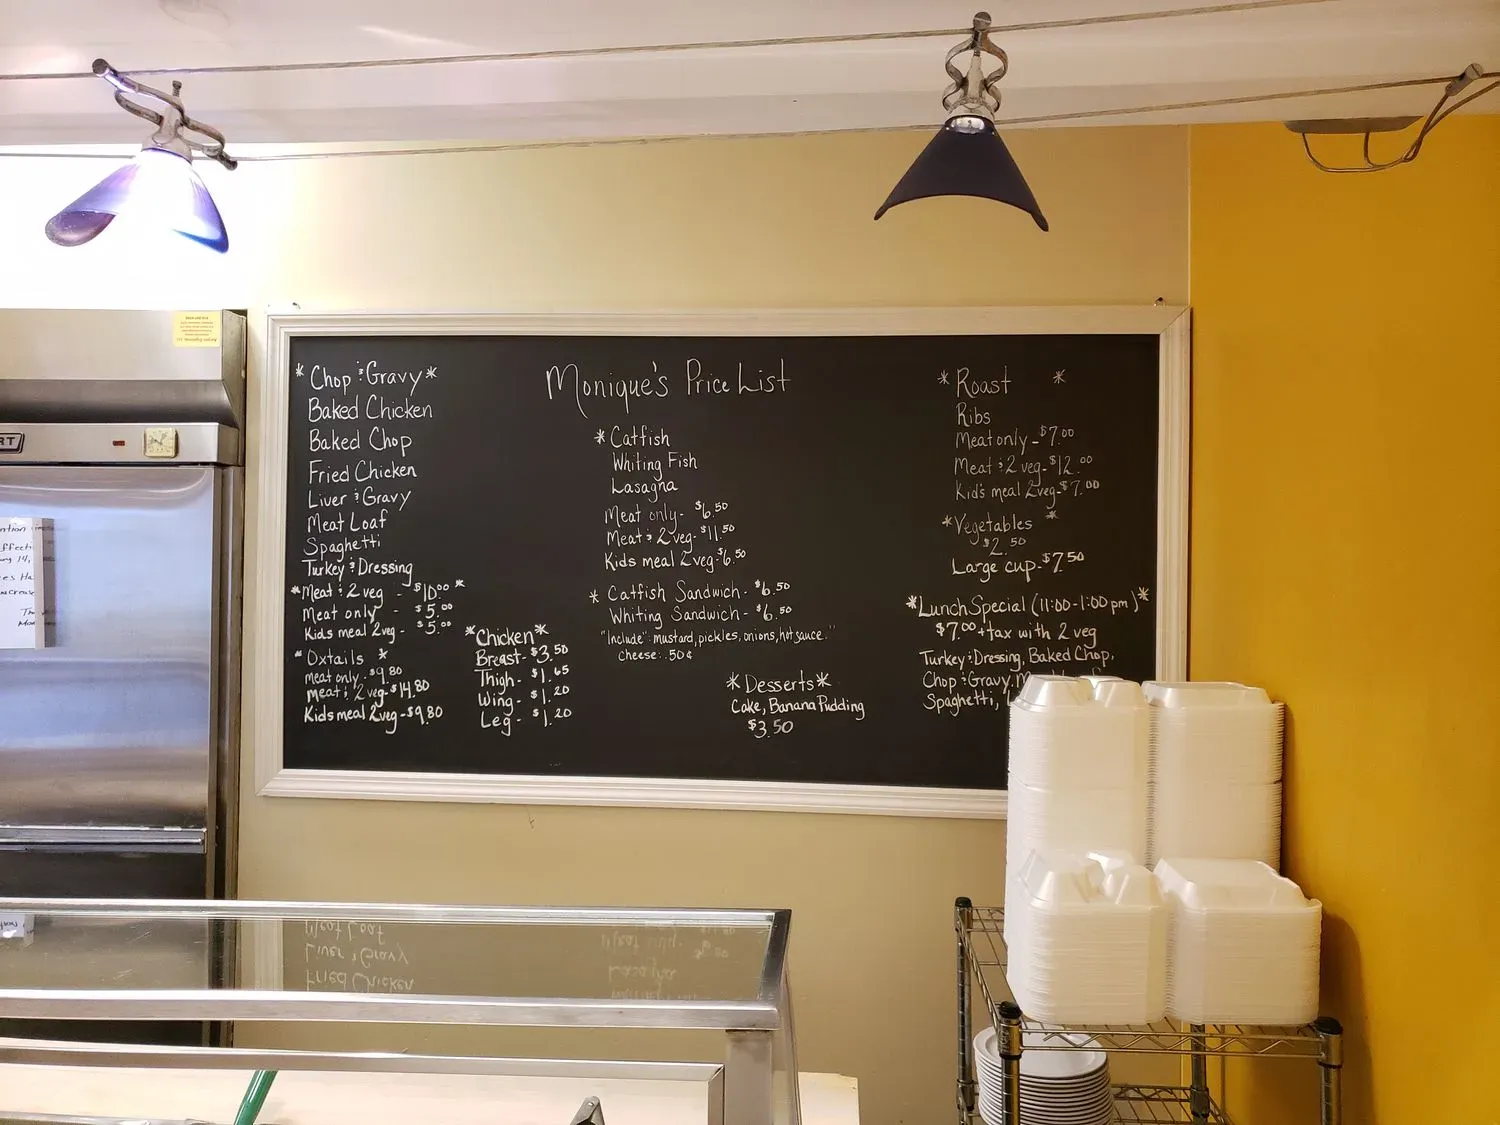 Monique's Price List
*Chop & Gravy*
Baked Chicken
Baked Chop
Fried Chicken
Liver & Gravy
Meat Loaf
Spaghetti
Turkey & Dressing
*Meat & 2 veg - $10.00*
Meat only - $5.00
Kids meal 2 veg - $5.00
*Oxtails*
meat only - $9.80
meat & 2 veg - $14.80
Kids meal 2 veg - $9.80
*Chicken*
Breast - $3.50
Thigh - $1.65
Wing - $1.20
Leg - $1.20
*Catfish
Whiting Fish
Lasagna
Meat only - $6.50
Meat & 2 veg - $11.50
Kids meal 2 veg - $6.50
* Catfish Sandwich - $6.50
Whiting Sandwich - $6.50
"Include": mustard, pickles, onions, hot sauce."
Cheese: .50¢
*Desserts*
Cake, Banana Pudding
$3.50
*Roast *
Ribs
Meat only - $7.00
Meat & 2 veg - $12.00
Kid's meal 2 veg - $7.00
*Vegetables *
$2.50
Large cup - $7.50
*Lunch Special (11:00-1:00 pm)*
$7.00 + tax with 2 veg
Turkey & Dressing, Baked Chop,
Chop & Gravy,
Spaghetti,